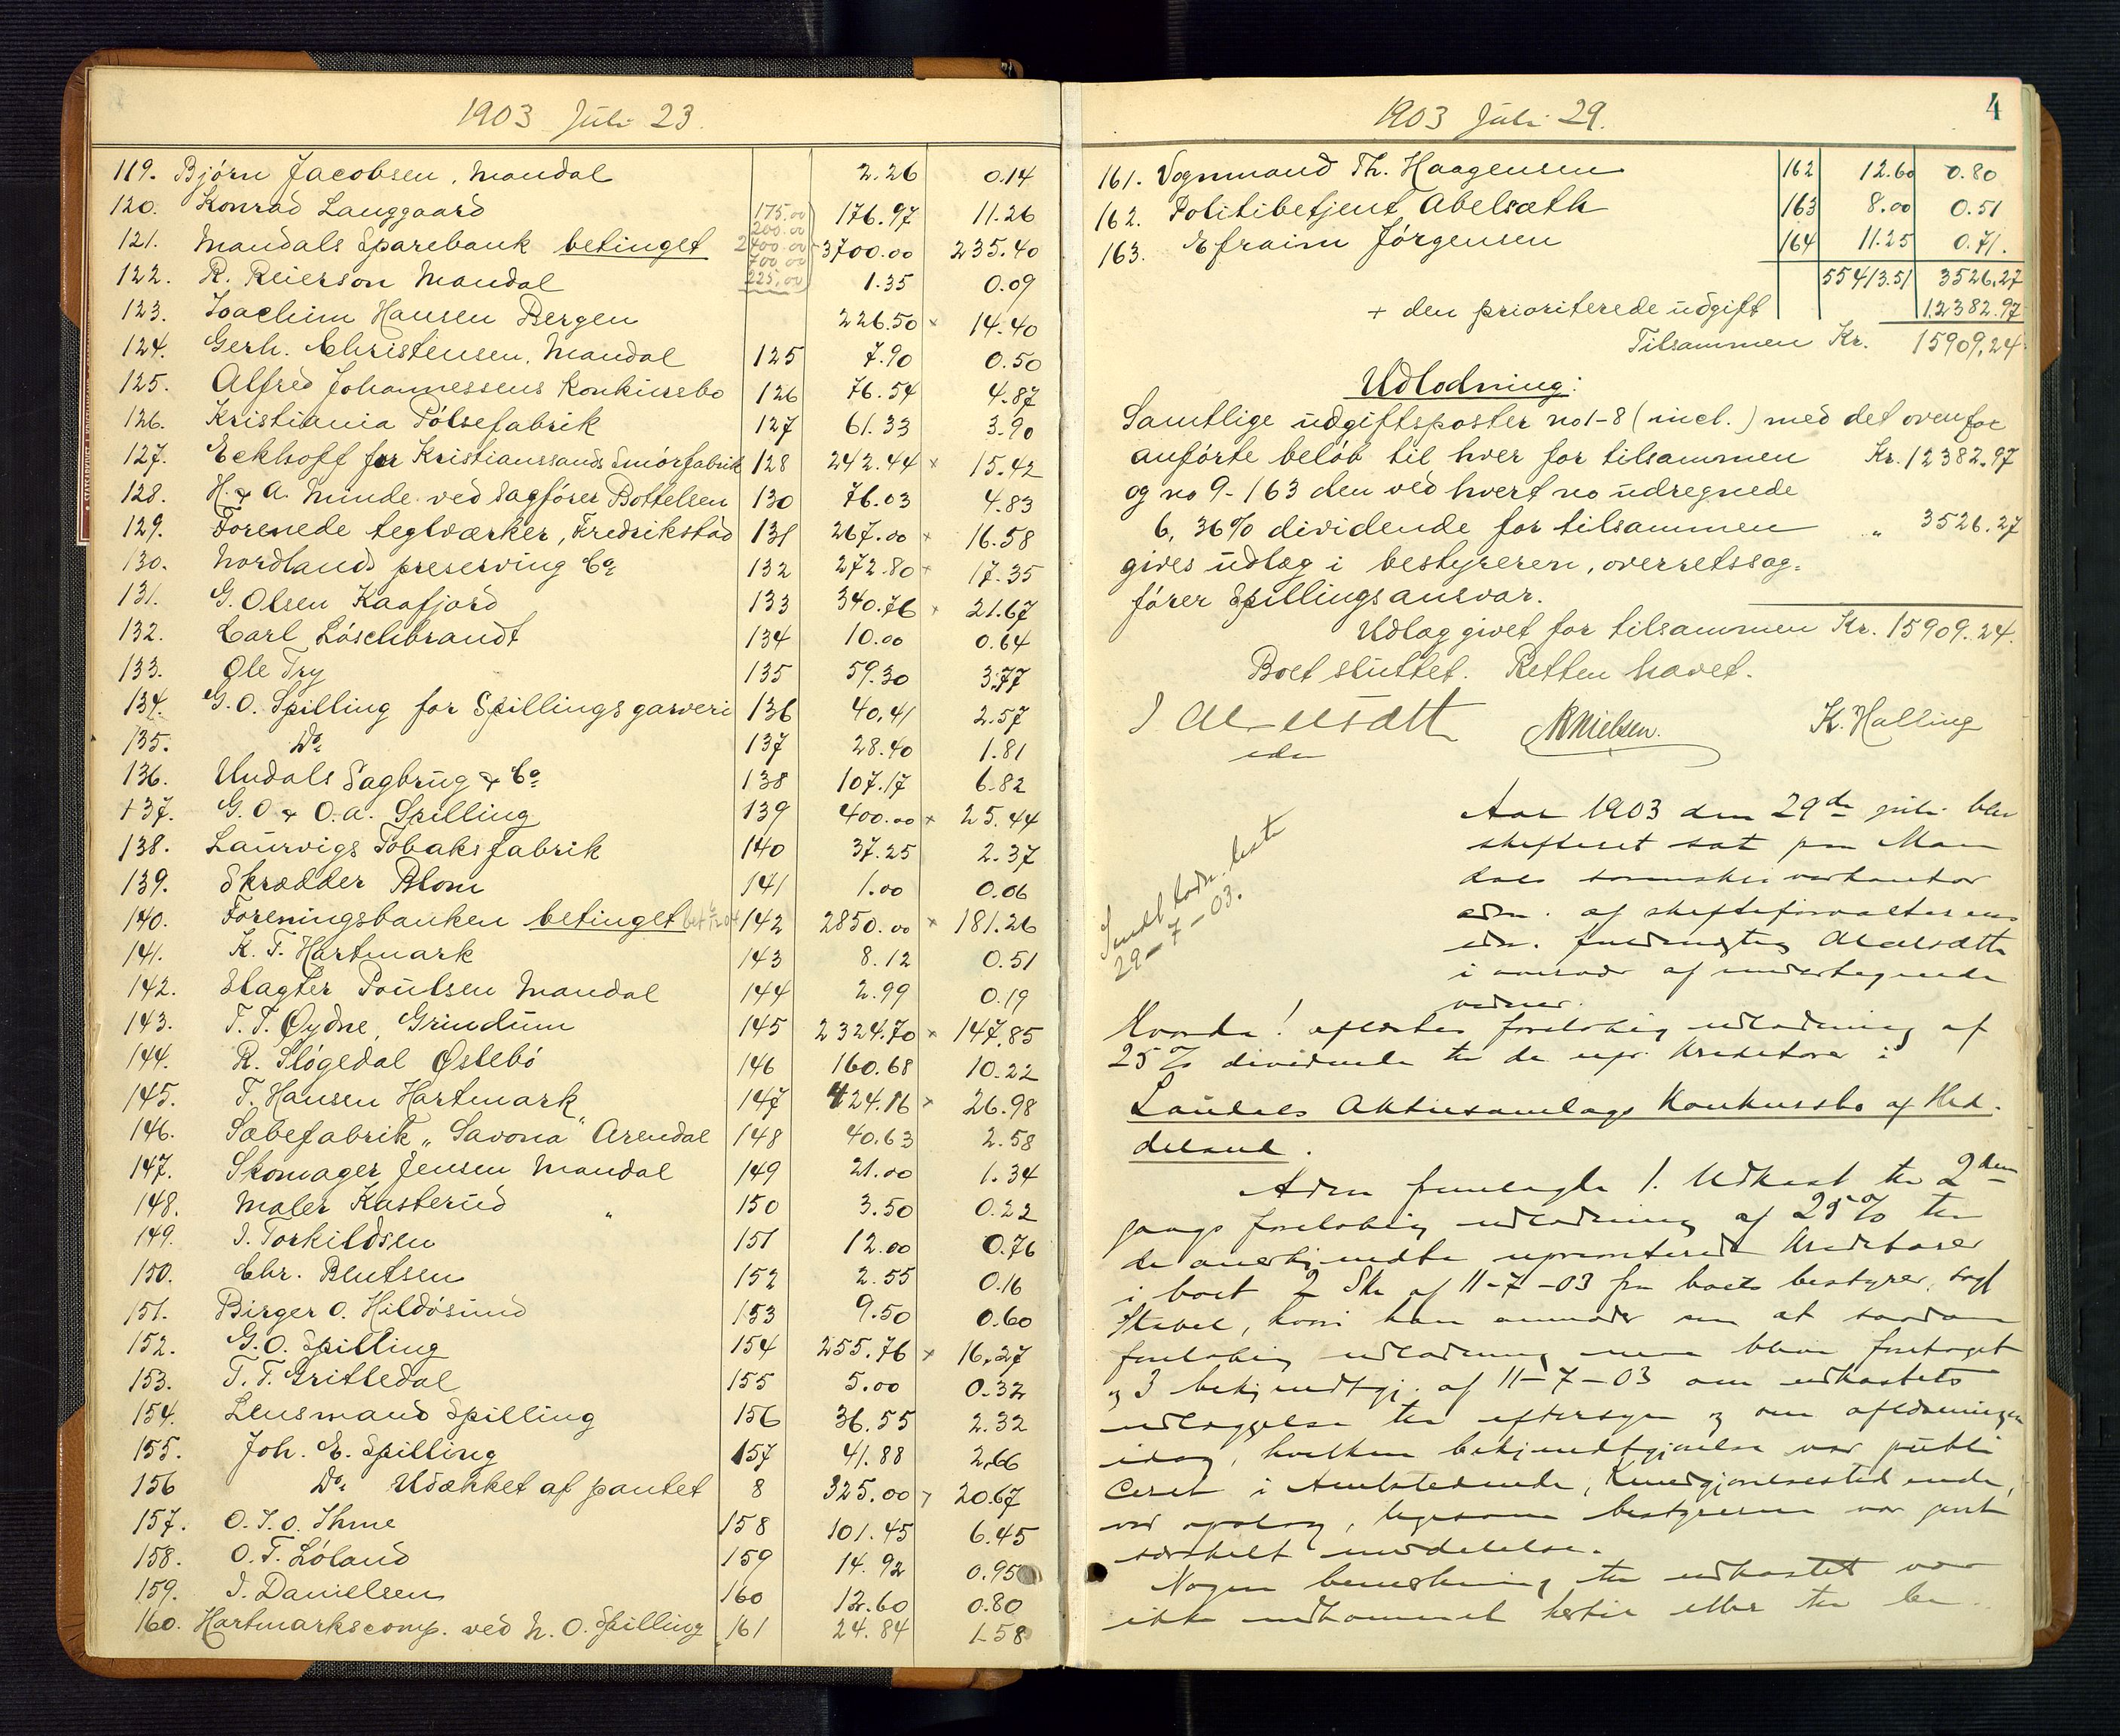 1903 Juli 23.
119. Bjørn Jacobsen, Mandal 2.26 0.14
120. Konrad Langgaard 176.97 11.26
175.00
200.00
2400.00
700.00
225.00
121. Mandals Sparebank betinget 3700.00 235.40
122. R. Reierson Mandal 1.35 0.09
123. Joachim Hansen Bergen 226.50 × 14.40
124. Gerh. Christensen, Mandal 125 7.90 0.50
125. Alfred Johannessens Konkursbo 126 76.54 4.87
126. Kristiania Pølsefabrik 127 61.33 3.90
127. Eckhoff for Kristianssands Smørfabrik 128 242.44 × 15.42
128. H. & A. Minde ved Sagfører Bottelsen 130 76.03 4.83
129. Forenede teglværker, Fredrikstad 131 267.00 × 16.58
130. Nordlands preserving Co: 132 272.80 × 17.35
131. G. Olsen Kaafjord 133 340.76 × 21.67
132. Carl Löschbrandt 134 10.00 0.64
133. Ole Try 135 59.30 3.77
134. G. O. Spilling for Spillings garveri 136 40.41 2.57
135. Do: 137 28.40 1.81
136. Undals Sagbrug & Co: 138 107.17 6.82
137. G. O & O. A. Spilling 139 400.00 × 25.44
138. Laurvigs Tobaksfabrik 140 37.25 2.37
139. Skrædder Blom 141 1.00 0.06
140. Foreningsbanken betinget 142 2850.00 × 181.26
141. K. T. Hartmark 143 8.12 0.51
142. Slagter Poulsen Mandal 144 2.99 0.19
143. T. T. Øydne, Grindum 145 2324.70 × 147.85
144. R. Sløgedal Østebø 146 160.68 10.22
145. T. Hansen Hartmark 147 424.16 × 26.98
146. Sæbefabrik „Savona" Arendal 148 40.63 2.58
147. Skomager Jensen Mandal 149 21.00 1.34
148. Maler Kasterud „ 150 3.50 0.22
149. I. Torkildsen 151 12.00 0.76
150. Chr. Bentsen 152 2.55 0.16
151. Birger O. Hildøsund 153 9.50 0.60
152. G. O. Spilling 154 255.76 × 16.27
153. T. T. Grittedal 155 5.00 0.32
154. Lensmand Spilling 156 36.55 2.32
155. Joh. E. Spilling 157 41.88 2.66
156 Do: Udækket af pantet 8 325.00 20.67
157. O. T. O. Ihme 158 101.45 6.45
158. O. T. Løland 159 14.92 0.95
159. I. Danielsen 160 12.60 0.80
160. Hartmarkscomp. ved N. O. Spilling 161 24.84 1.58
4
1903 Juli 29.
161. Vognmand Th. Haagensen 162 12.60 0.80
162. Politibetjent Abelsæth 163 8.00 0.51
163. Efraim Jørgensen 164 11.25 0.71.
55413.51 3526.27
+ den prioriterede udgift 12382.97
Tilsammen Kr. 15909.24
Udlodning:
Samtlige udgiftsposter no 1-8 (incl.) med det ovenfor
anførte beløb til hver for tilsammen Kr. 12382.97
og no 9-163 den ved hvert no udregnede
6,36% dividende for tilsammen „ 3526.27
gives udlæg i bestyreren, overretssag-
fører Spillings ansvar.
Udlæg givet for tilsammen Kr. 15909.24.
Boet sluttet. Retten hævet.
Nielsen. K. Halling
29-7-03.
Aar 1903 den 29de juli blev
skifteret sat paa Man
dals sorenskriverkontor
adm. af skifteforvalterens
edsv. fuldmægtig Abelsæth
i overvær af undertegnede
vidner.
Hvorda! afløstes foreløbig udlodning af
25% dividende til de upr. kreditorer i
Laudals Aktiesamlags Konkursbo af Hed-
deland.
Adm fremlagde 1. Udkast til 2den
gangs foreløbig udlodning af 25% til
de anerkjendte uprioriterede kreditorer
i boet 2 Skr af 11-7-03 fra boets bestyrer, sagf
Stabel, hvori han anmoder om at saadan
foreløbig udlodning maa blive foretaget
og 3 bekjendtgj. af 11-7-03 om udkastets
udlæggelse til eftersyn og om
idag, hvilken bekjendtgjørelse var publi
ceret i Amtstidende, Kundgjørelsestidende,
ved opslag, ligesom bestyreren var givet
særskilt meddelelse.
Nogen bemerkning til udkastet var
ikke indkommet hertil eller til